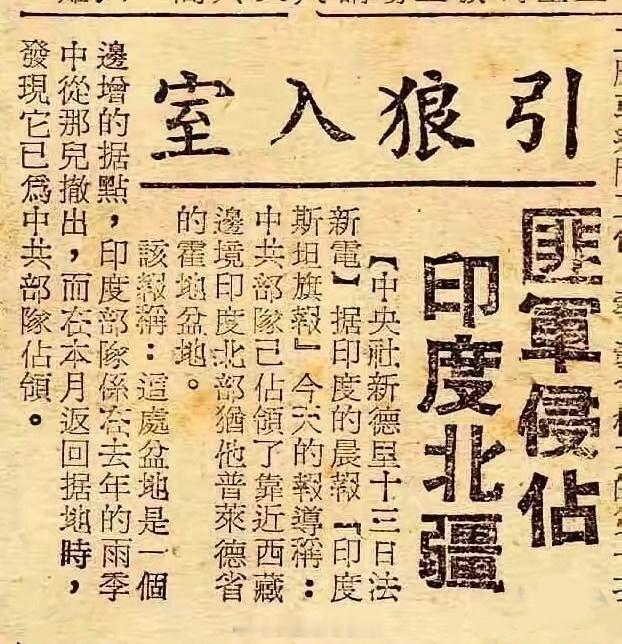 引狼入室
匪軍侵佔
印度北疆
【中央社新德里十三日法
新電】据印度的晨報『印度
斯坦旗報』今天的報導稱：
中共部隊已佔領了靠近西藏
邊境印度北部猶他普萊德省
的霍地盆地。
該報稱：這處盆地是一個
邊增的据點，印度部隊係在去年的雨季
中從那兒撤出，而在本月返回据地時，
發現它已為中共部隊佔領。